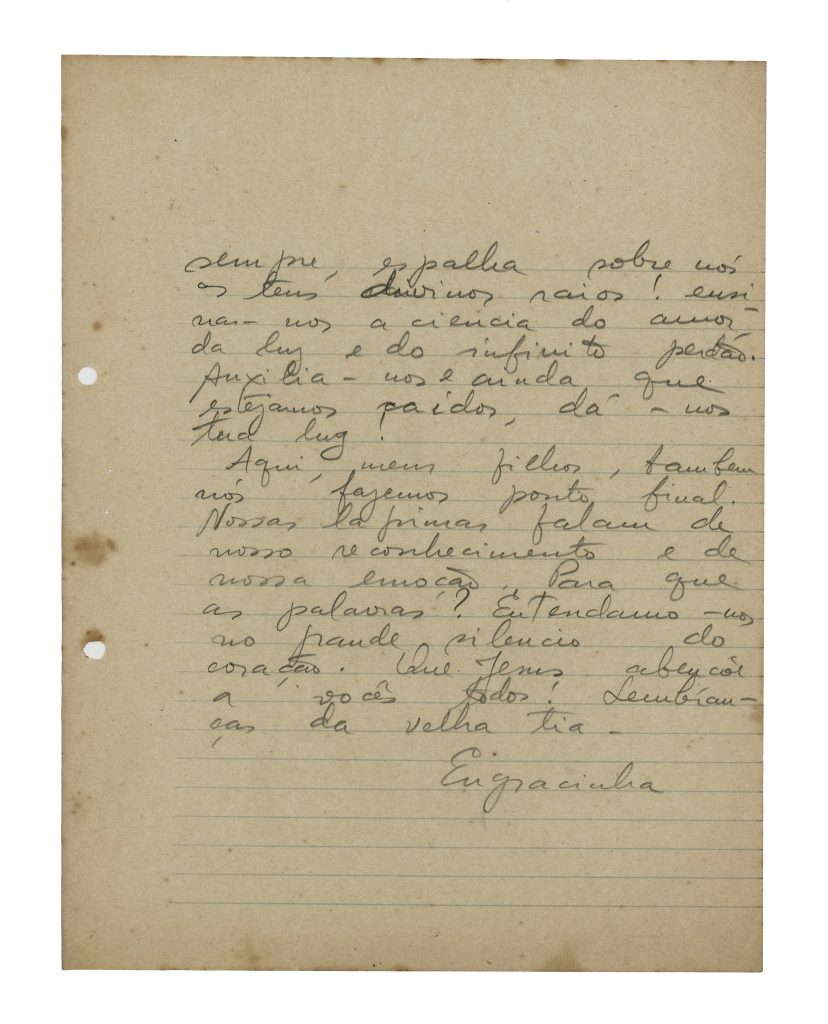 sempre, espalha sobre nós
os teus divinos raios! ensi
nas-nos a ciencia do amor,
da luz e do infinito perdão.
Auxilia-nos e ainda que
estejamos caídos, dá-nos
tua luz!
Aqui, meus filhos, tambem
nós fazemos ponto final.
Nossas lagrimas falam de
nosso reconhecimento e de
nossa emoção. Para que
as palavras? Entendamo-nos
no grande silencio do
coração. Que Jesus abençõe
a vocês todos! Lembran-
ças da velha tia -
Engracinha